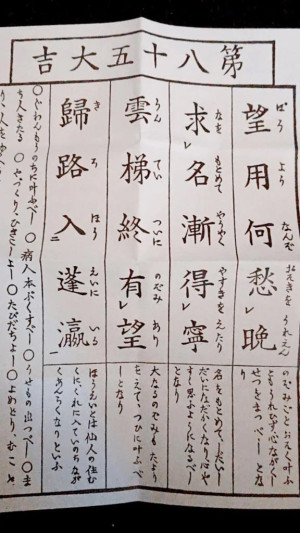 第八十五大吉
望用何愁晩
ばう より なんぞ おそきを うれえん
のぞみごとおそく叶ふ
ともうれひず心ながく
せつをまつべしとな
求名漸得寧
なを もとめて やうやく やすきを えたり
名をもとめて、だい
だいになだかくなり心や
すし思ふようになるべし
となり
雲梯終有望
うん てい ついに のぞみ あり
大なるのぞみもたより
をえて、つひに叶ふべ
しとなり
歸路入蓬瀛
き ろ ほう えいに いる
ほうえいとは仙人の住む
くに、くれに入ていのちなが
くあんらくなりといふ
○ぐわんもうのちに叶ふべし○病人本ぷくすべし○うせもの出づべし○ま
ち人きたる○やづくり、ひきこしよし○たびだちよし○よめとり、むこ
り、人を